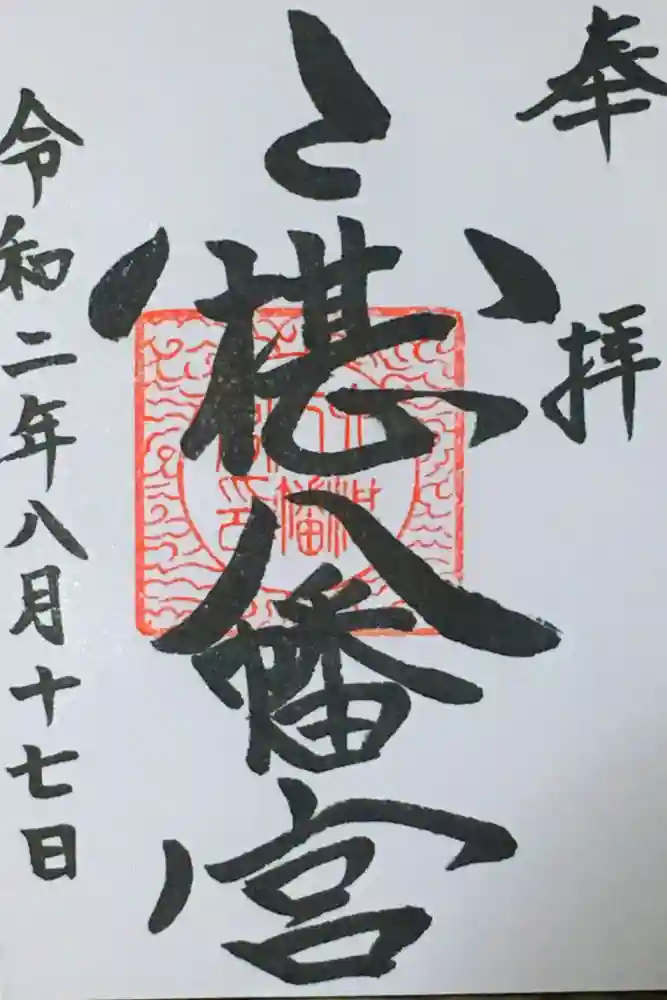 奉拝
六椹八幡宮
令和二年八月十七日